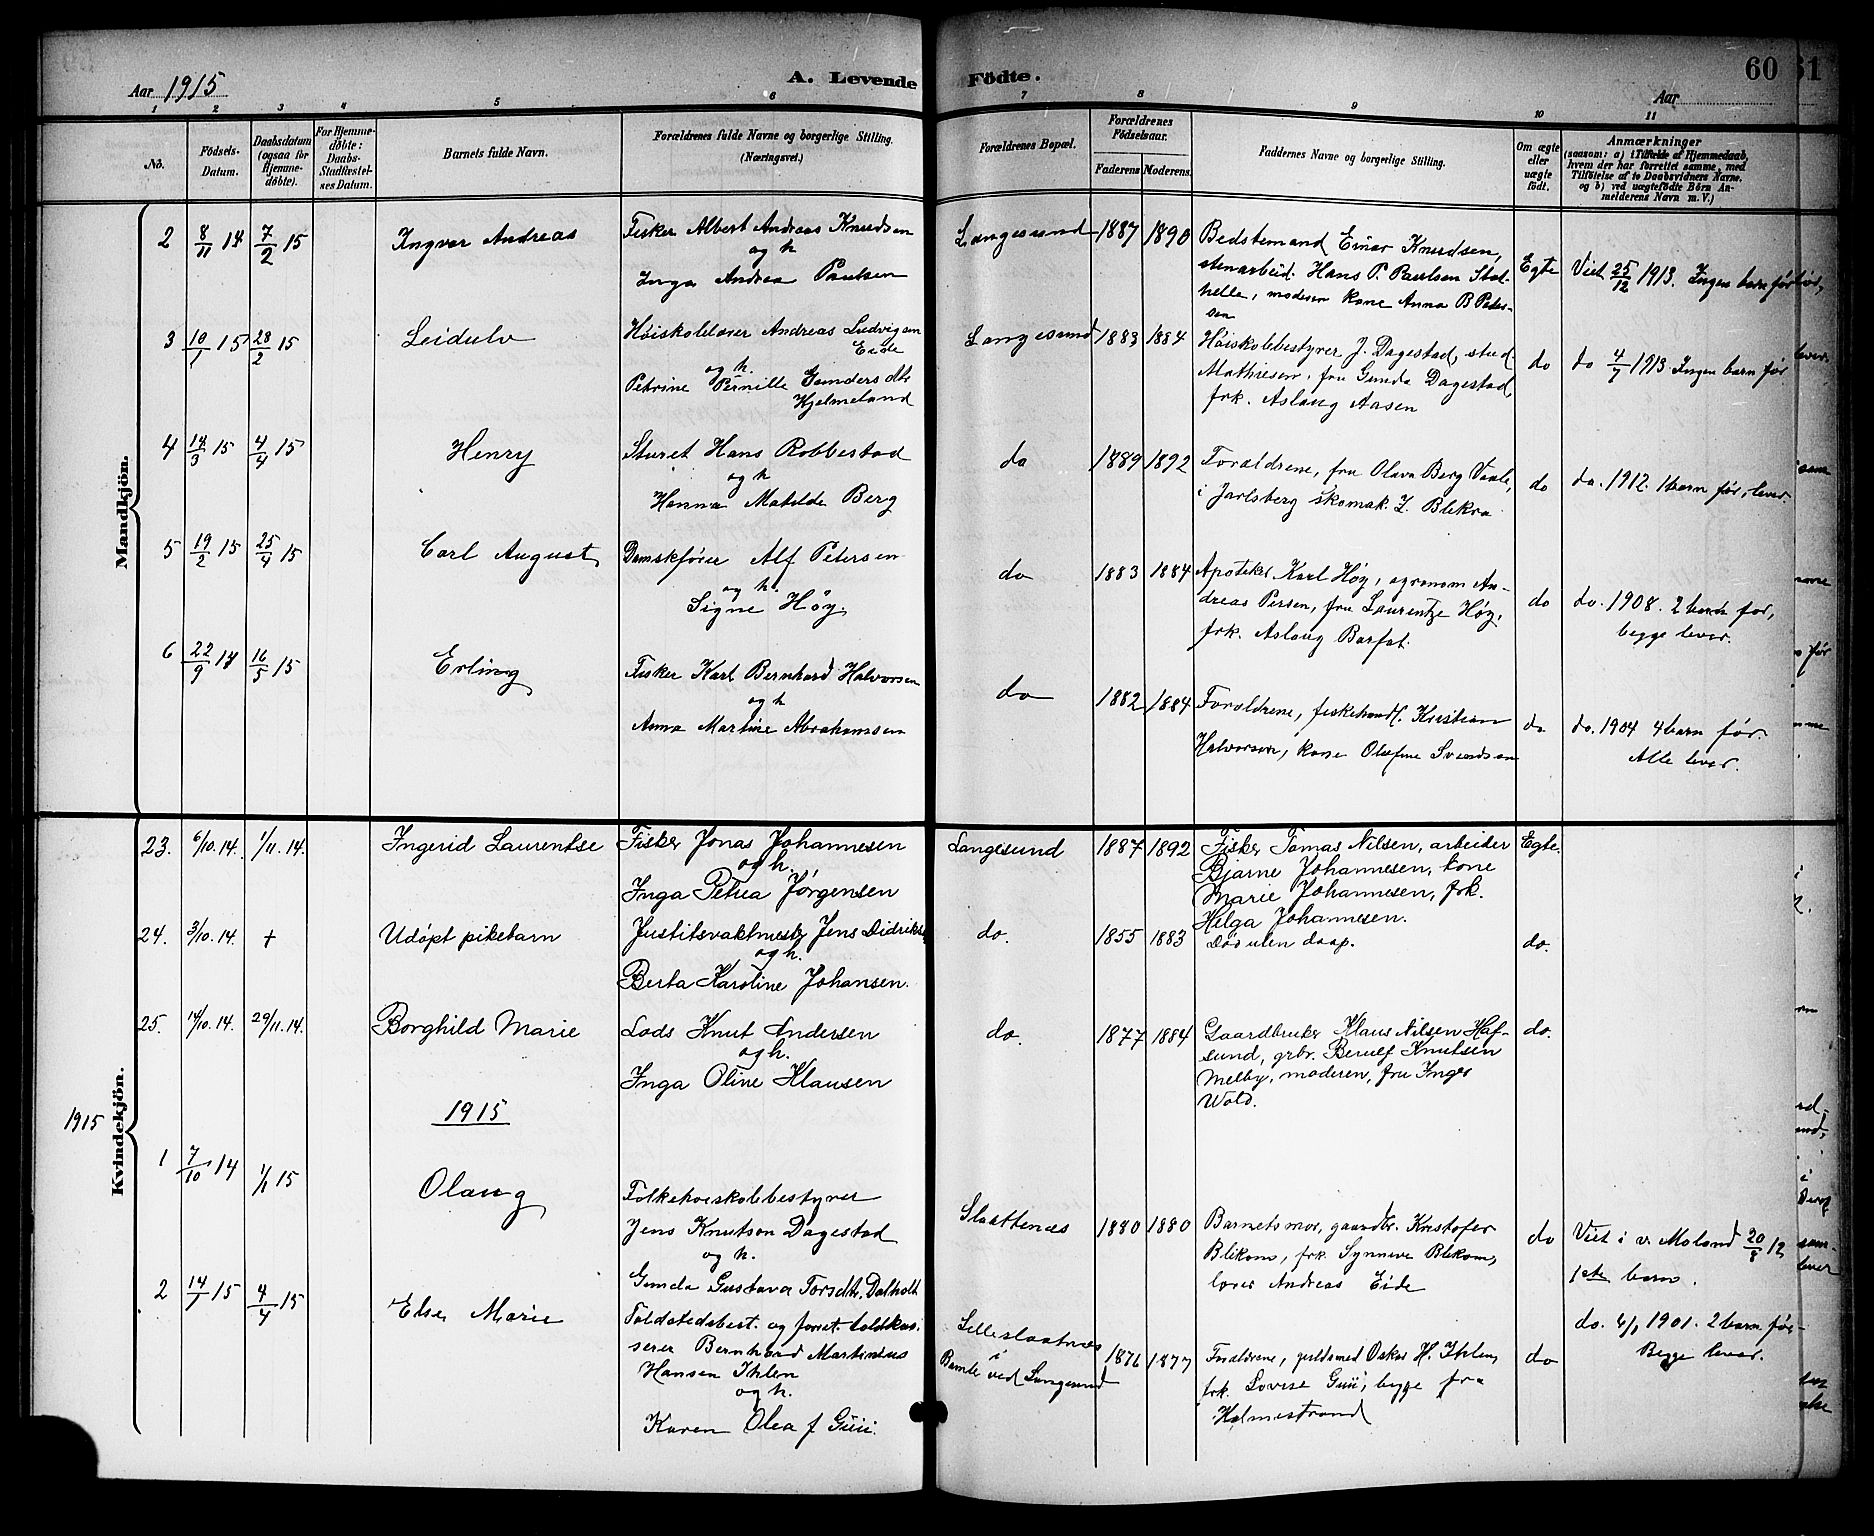 Aar 1915
A. Levende Födte.
60
31
Aar
1 2 3 4 5 6 7 8 9 10 11
No.
Födsels-Datum.
Daabsdatum (ogsaa for Hjemmedöbte).
For Hjemmedöbte: Daabs-Stadfæstelses Datum.
Barnets fulde Navn.
Forældrenes fulde Navne og borgerlige Stilling. (Næringsvei.)
Forældrenes Bopæl.
Forældrenes Födselsaar.
Faderens Moderens.
Faddernes Navne og borgerlige Stilling.
Om ægte eller uægte födt.
Anmærkninger
(saasom: a) i Tilfælde af Hjemmedaab, hvem der har forrettet samme, med Tilföielse af to Daabsvidners Navne. og b) ved uægtefödte Börn Anmelderens Navn m. V.)
Mandkjön.
2 8/11 14 7/2 15 Ingvar Andreas
Fisker Albert Andreas Knudsen
og h
Inga Andrea Paulsen
Langesund 1887 1890
Bedstemand Einar Knudsen,
stenarbeid. Hans P. Paulsen Stat-
helle, moderen kone Anna B Peder-
sen
Egte
Viet 25/12 1913. Ingen barn før
3 10/1 15 28/2 15 Leidulv
Høiskolelærer Andreas Ludvigsen
Eide
og h.
Petrine Pernille Gunders dtr
Hjelmeland
Langesund 1883 1884
Høiskolebestyrer J. Dagestad, stud.
Mathiesen. fru Gunda Dagestad
frk. Aslaug Aasen
do
do 4/7 1913. Ingen barn før
4 14/3 15 4/4 15 Henry
Sturet Hans Robbestad
og h
Hanna Matilde Berg
do 1889 1892
Forældrene, fru Olava Berg Vaale,
i Jarlsberg skomak. Z. Blekra
do
do. 1912. 1 barn før, lever
5 19/2 15 25/4 15 Carl August
Damskfører Alf Petersen
og h.
Signe Høy.
do 1883 1884
Apoteker Karl Høy, agronom An-
dreas Persen, fru Laurentze Høy,
frk. Aslaug Barfat.
do
do. 1908. 2 barn før,
begge lever.
6 22/9 14 16/5 15 Erling
Fisker Karl Bernhard Halvorsen
og h
Anna Martine Abrahamsen
do 1882 1884
Forældrene, fiskehandl. Kristian
Halvorsen, kone Olufine Svendsen
do
do. 1904 4 barn før.
Alle lever.
1915
Kvindekjön.
23. 6/10. 14. 1/11. 14. Ingerid Laurentse
Fisker Jonas Johannesen
og h.
Inga Petrea Jørgensen
Langesund 1887 1892
Fisker Tomas Nilsen, arbeider
Bjarne Johannesen, kone
Marie Johannesen, frk.
Helga Johannesen.
Egte.
24. 3/10. 14. + Udøpt pikebarn
Justitsvaktmester Jens Didriks
og h.
Berta Karoline Johansen.
do. 1855 1883
Død uten daap.
do.
25. 14/10. 14. 29/11. 14. Borghild Marie
Lods Knut Andersen
og h.
Inga Oline Klausen
do. 1877 1884
Gaardbruker Klaus Nilsen Haf-
sund, grbr. Berulf Knutsen
Melby, moderen, fru Inger
Wold.
do.
1915
1 7/10 14 1/1 15 Olaug
Folkehøiskolebestyrer
Jens Knutson Dagestad
og h.
Gunda Gustava Torsdtr. Dalholt
Slaattenæs 1880 1880
Barnets mor, gaardbr. Kristofer
Blekom, frk. Synneve Blekom,
lærer Andreas Eide
do
Viet i v. Moland 20/8 12
1ste barn.
2 14/1 15 4/4 15 Else Marie
Toldstedsbest. og forret. toldkas-
serer Bernhard Martinius
Hansen Ihlen
og h.
Karen Olea f Guii.
Lilleslaatnæs
i
Bamle ved Langesund
1876 1877
Forældrene, guldsmed Oskar H. Ihlen,
frk. Lovise Guii, begge fra
Holmestrand
do
do. 4/1 1901. 2 barn før
Begge lever.